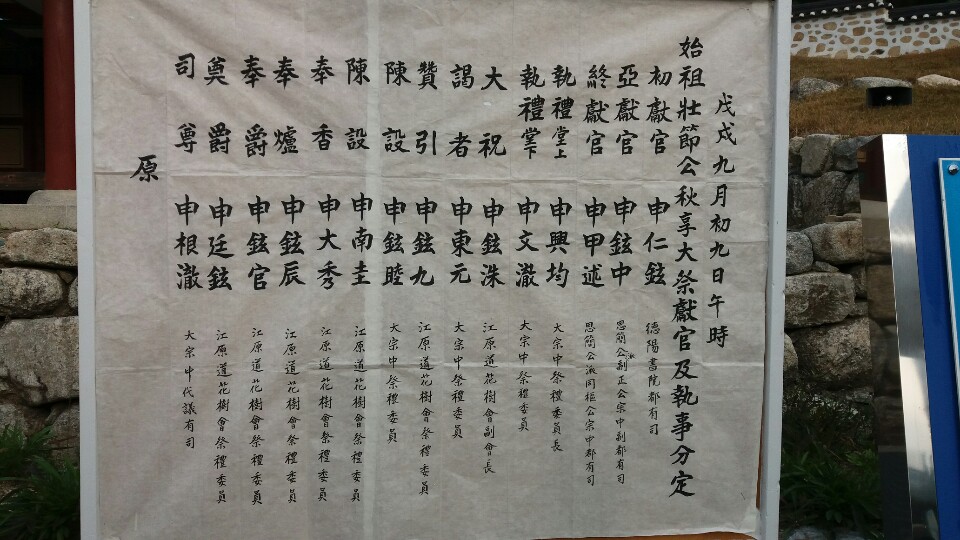 戊戌九月初九日午時
始祖壯節公秋享大祭獻官及執事分定
初獻官 申仁鉉 德陽書院都有司
亞獻官 申鉉中 思簡公派副正公宗中副都有司
終獻官 申甲述 思簡公派同樞公宗中都有司
執禮堂上 申興均 大宗中祭禮委員長
執禮堂下 申文澈 大宗中祭禮委員
大祝 申鉉洙 江原道花樹會副會長
謁者 申東元 大宗中祭禮委員
贊引 申鉉九 江原道花樹會祭禮委員
陳設 申鉉睦 大宗中祭禮委員
陳設 申南圭 江原道花樹會祭禮委員
奉香 申大秀 江原道花樹會祭禮委員
奉爐 申鉉辰 江原道花樹會祭禮委員
奉爵 申鉉官 江原道花樹會祭禮委員
奠爵 申廷鉉 江原道花樹會祭禮委員
司尊 申根澈 大宗中代議有司
原